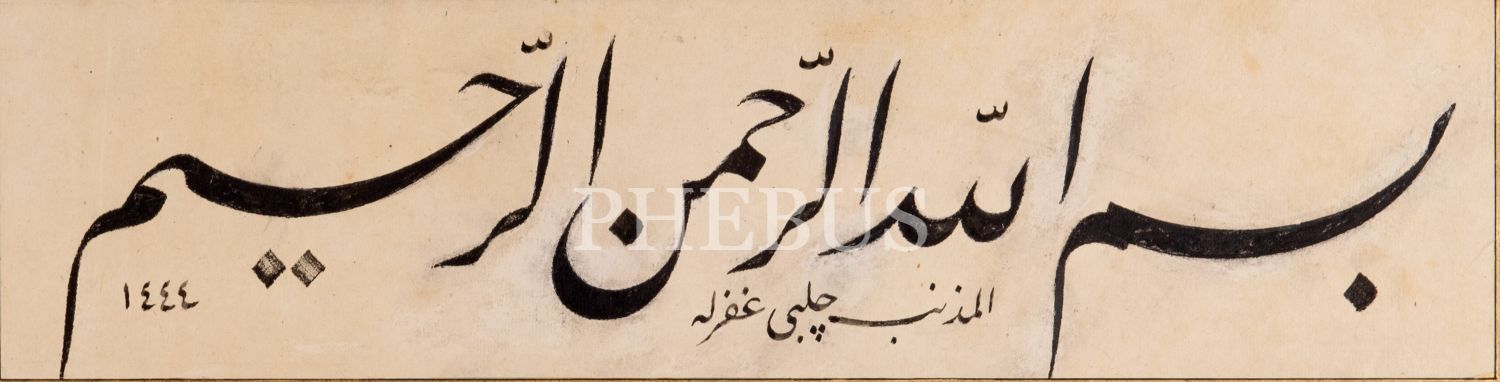 بسم الله الرّحمن الرّحيم
المذنب چلبی غفرله
١٤٤٤
PHEBUS